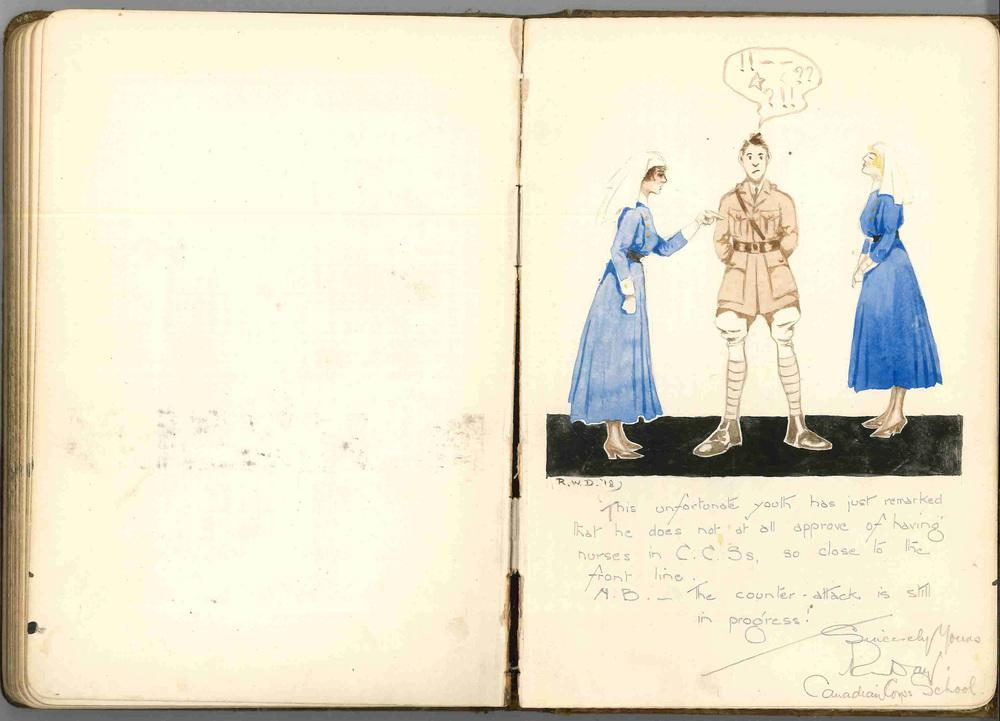 !! — —
??
?!!
R.W.D. '18
This unfortunate youth has just remarked
that he does not at all approve of having
nurses in C.C.Ss, so close to the
front line.
N.B. — The counter-attack is still
in progress!
Sincerely Yours
Canadian Corps School.